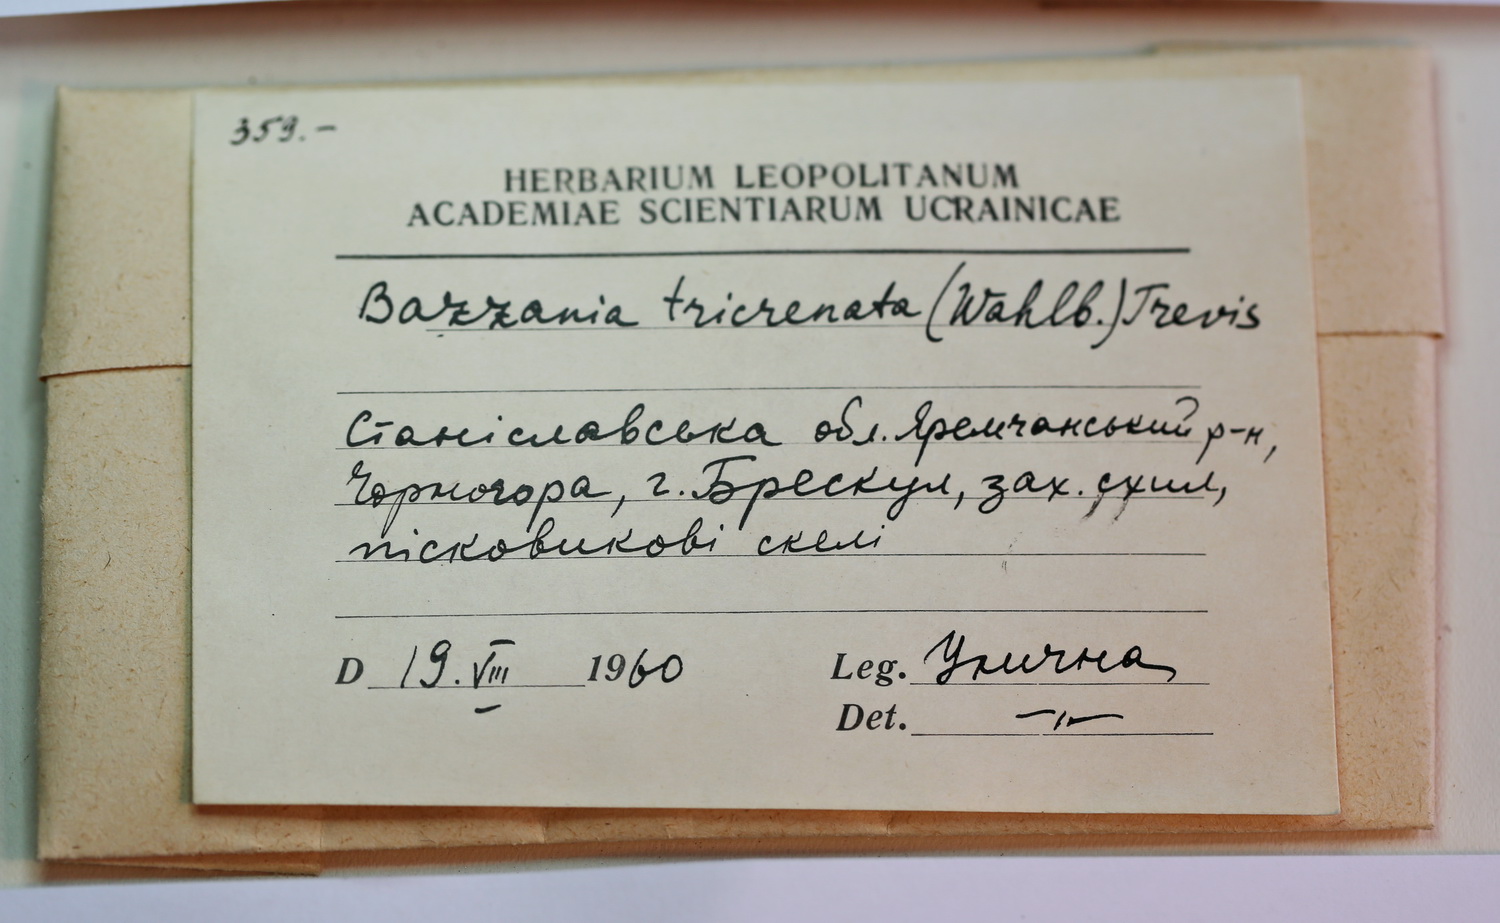 359.-
HERBARIUM LEOPOLITANUM
ACADEMIAE SCIENTIARUM UCRAINICAE
Bazzania tricrenata (Wahlb.) Trevis
Станіславська обл. Яремчанський р-н,
Чорногора, г. Брескул, зах. схил,
пісковикові скелі
D 19.VIII 1960 Leg. Улична
Det. —"—